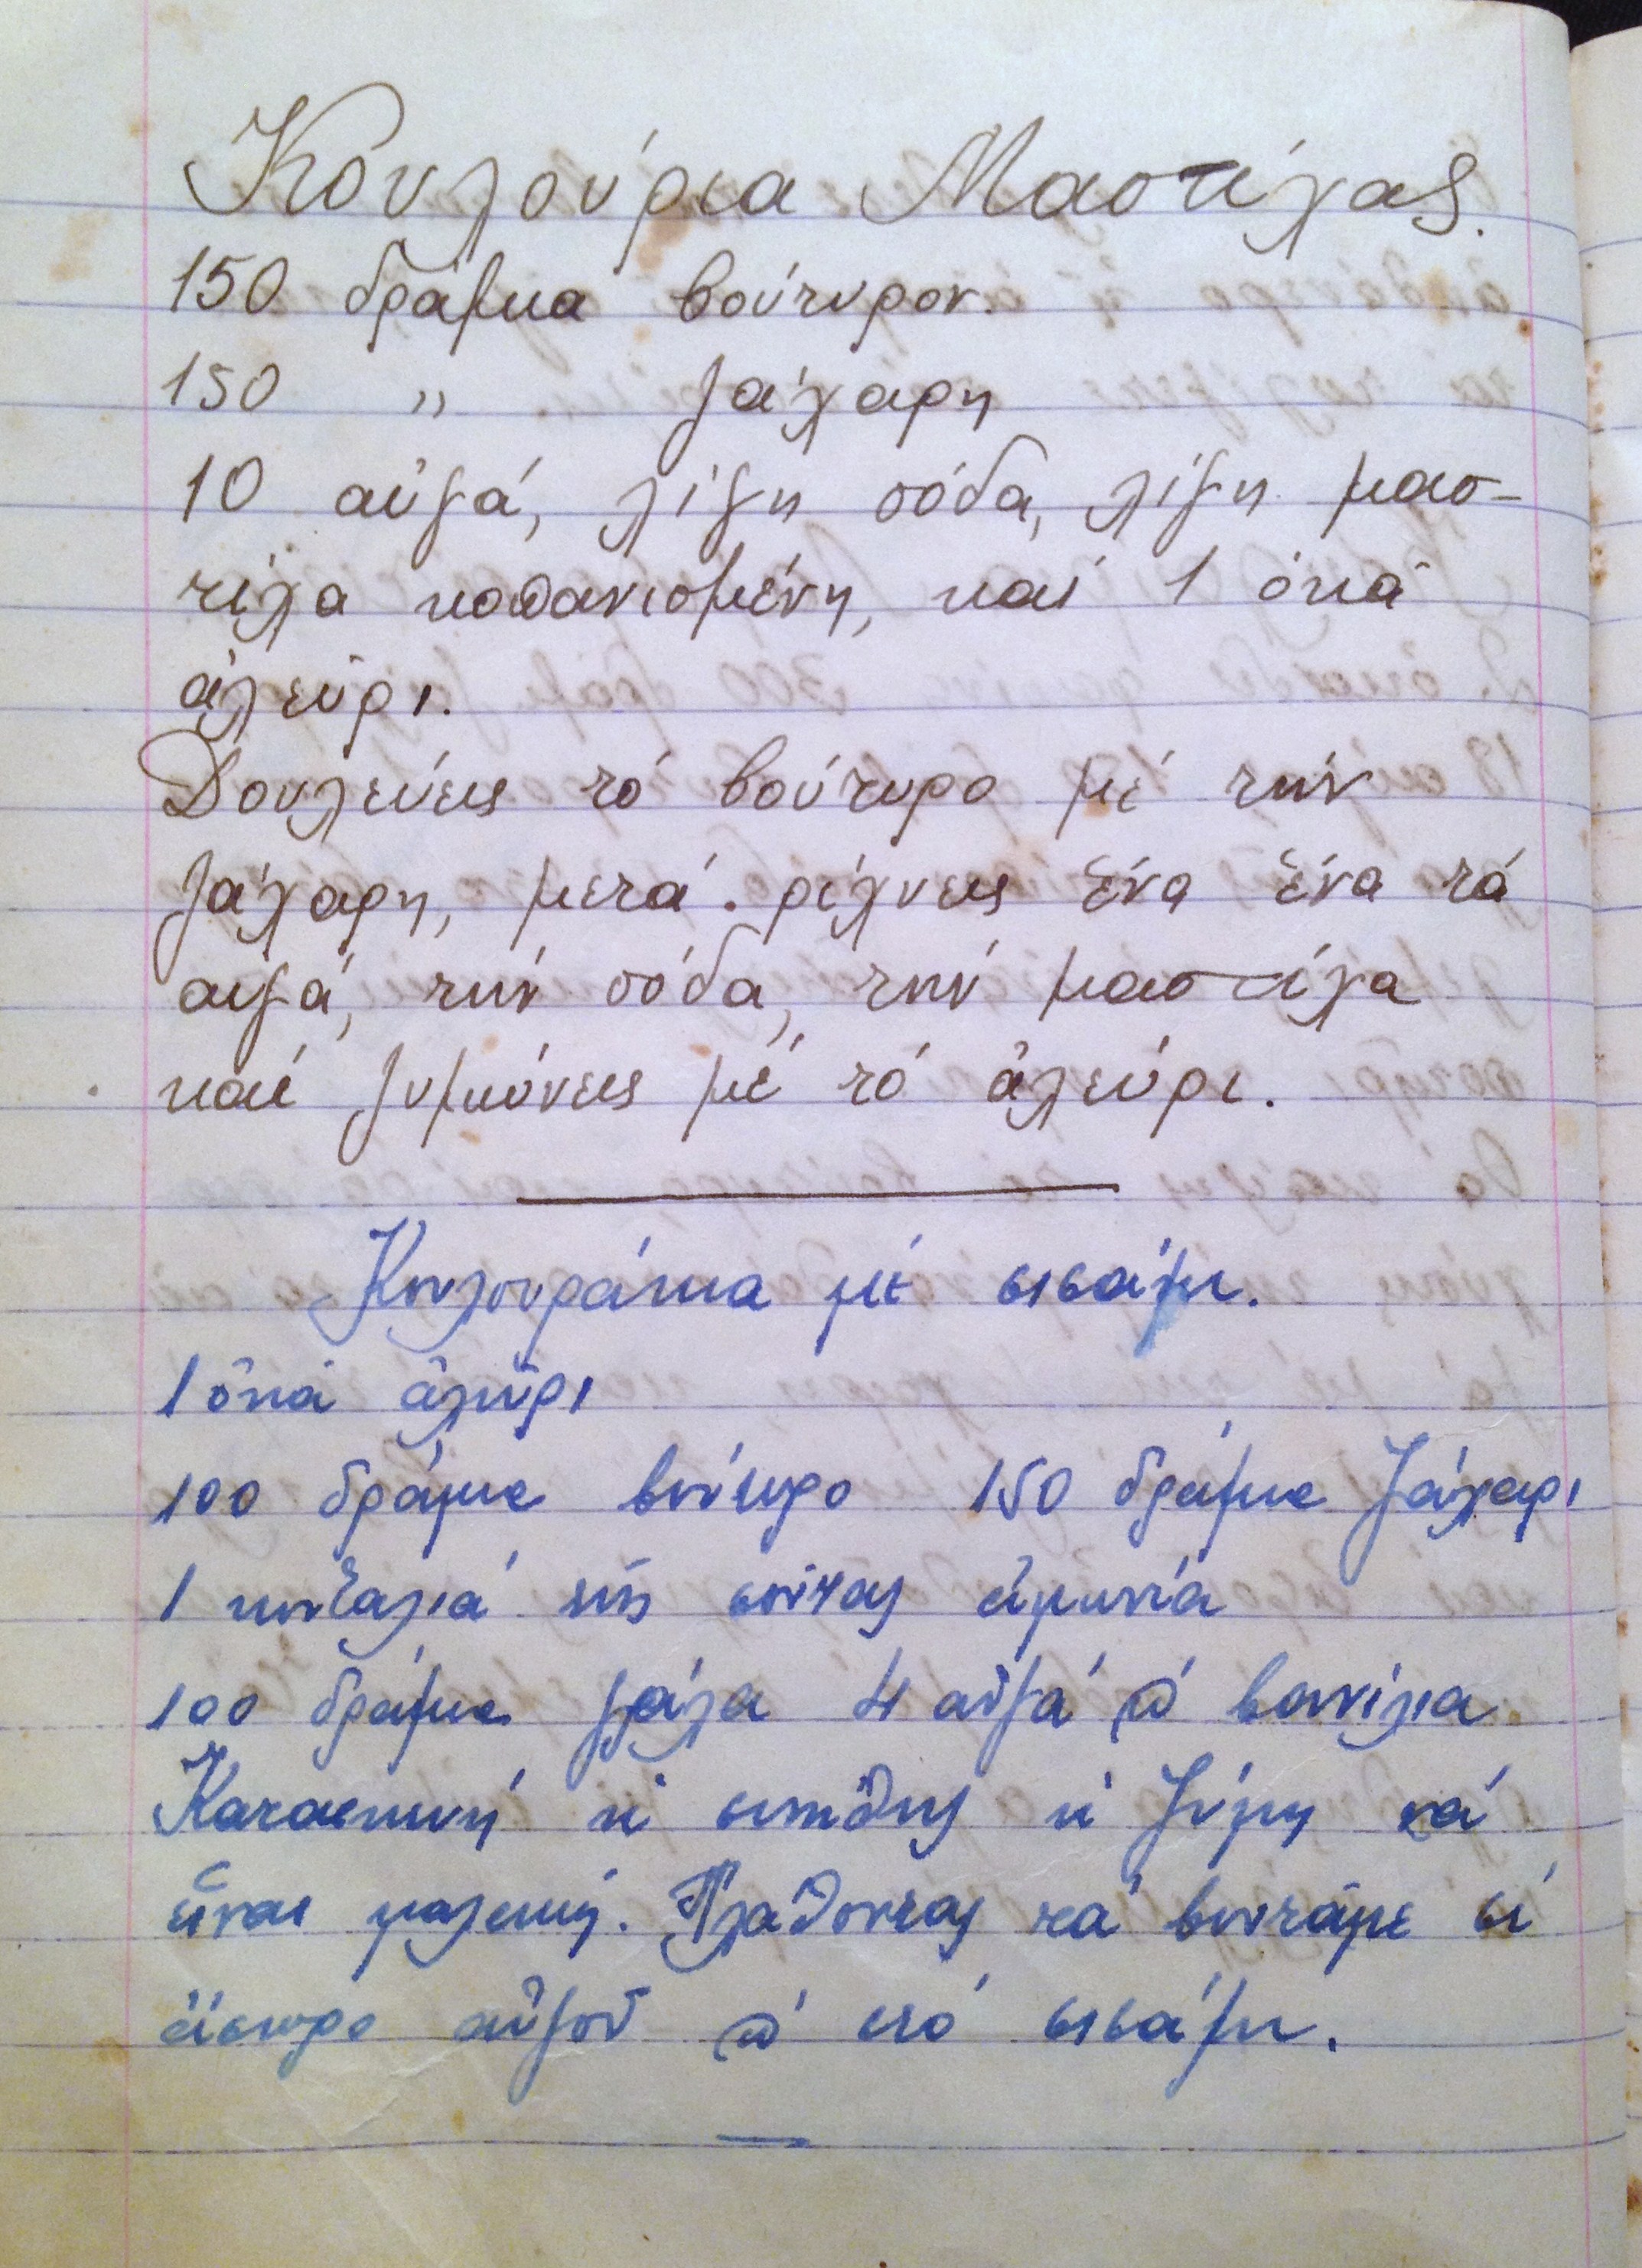 Κουλούρια Μαστίχας.
150 δράμια βούτυρον.
150 " ζάχαρη
10 αὐγά, λίγη σόδα, λίγη μασ-
τίχα κοπανισμένη, καί 1 ὀκά
ἀλεύρι.
Δουλεύεις τό βούτυρο μέ τήν
ζάχαρη, μετά ρίχνεις ἕνα ἕνα τά
αυγά, τήν σόδα, τήν μαστίχα
καί ζυμώνεις μέ τό ἀλεύρι.
Κουλουράκια μέ σισάμι.
1 ὀκά ἀλεύρι
100 δράμια βούτυρο 150 δράμια ζάχαρι
1 κουταλιά τῆς σούπας ἀμωνία
100 δράμια γάλα 4 αὐγά & βανίλια
Κατασκευή ἡ συνήθης ἡ ζύμη νά
εἶναι μαλακή. Πλάθοντας τά βουτᾶμε σέ
ἄσπρο αὐγοῦ & στό σισάμι.